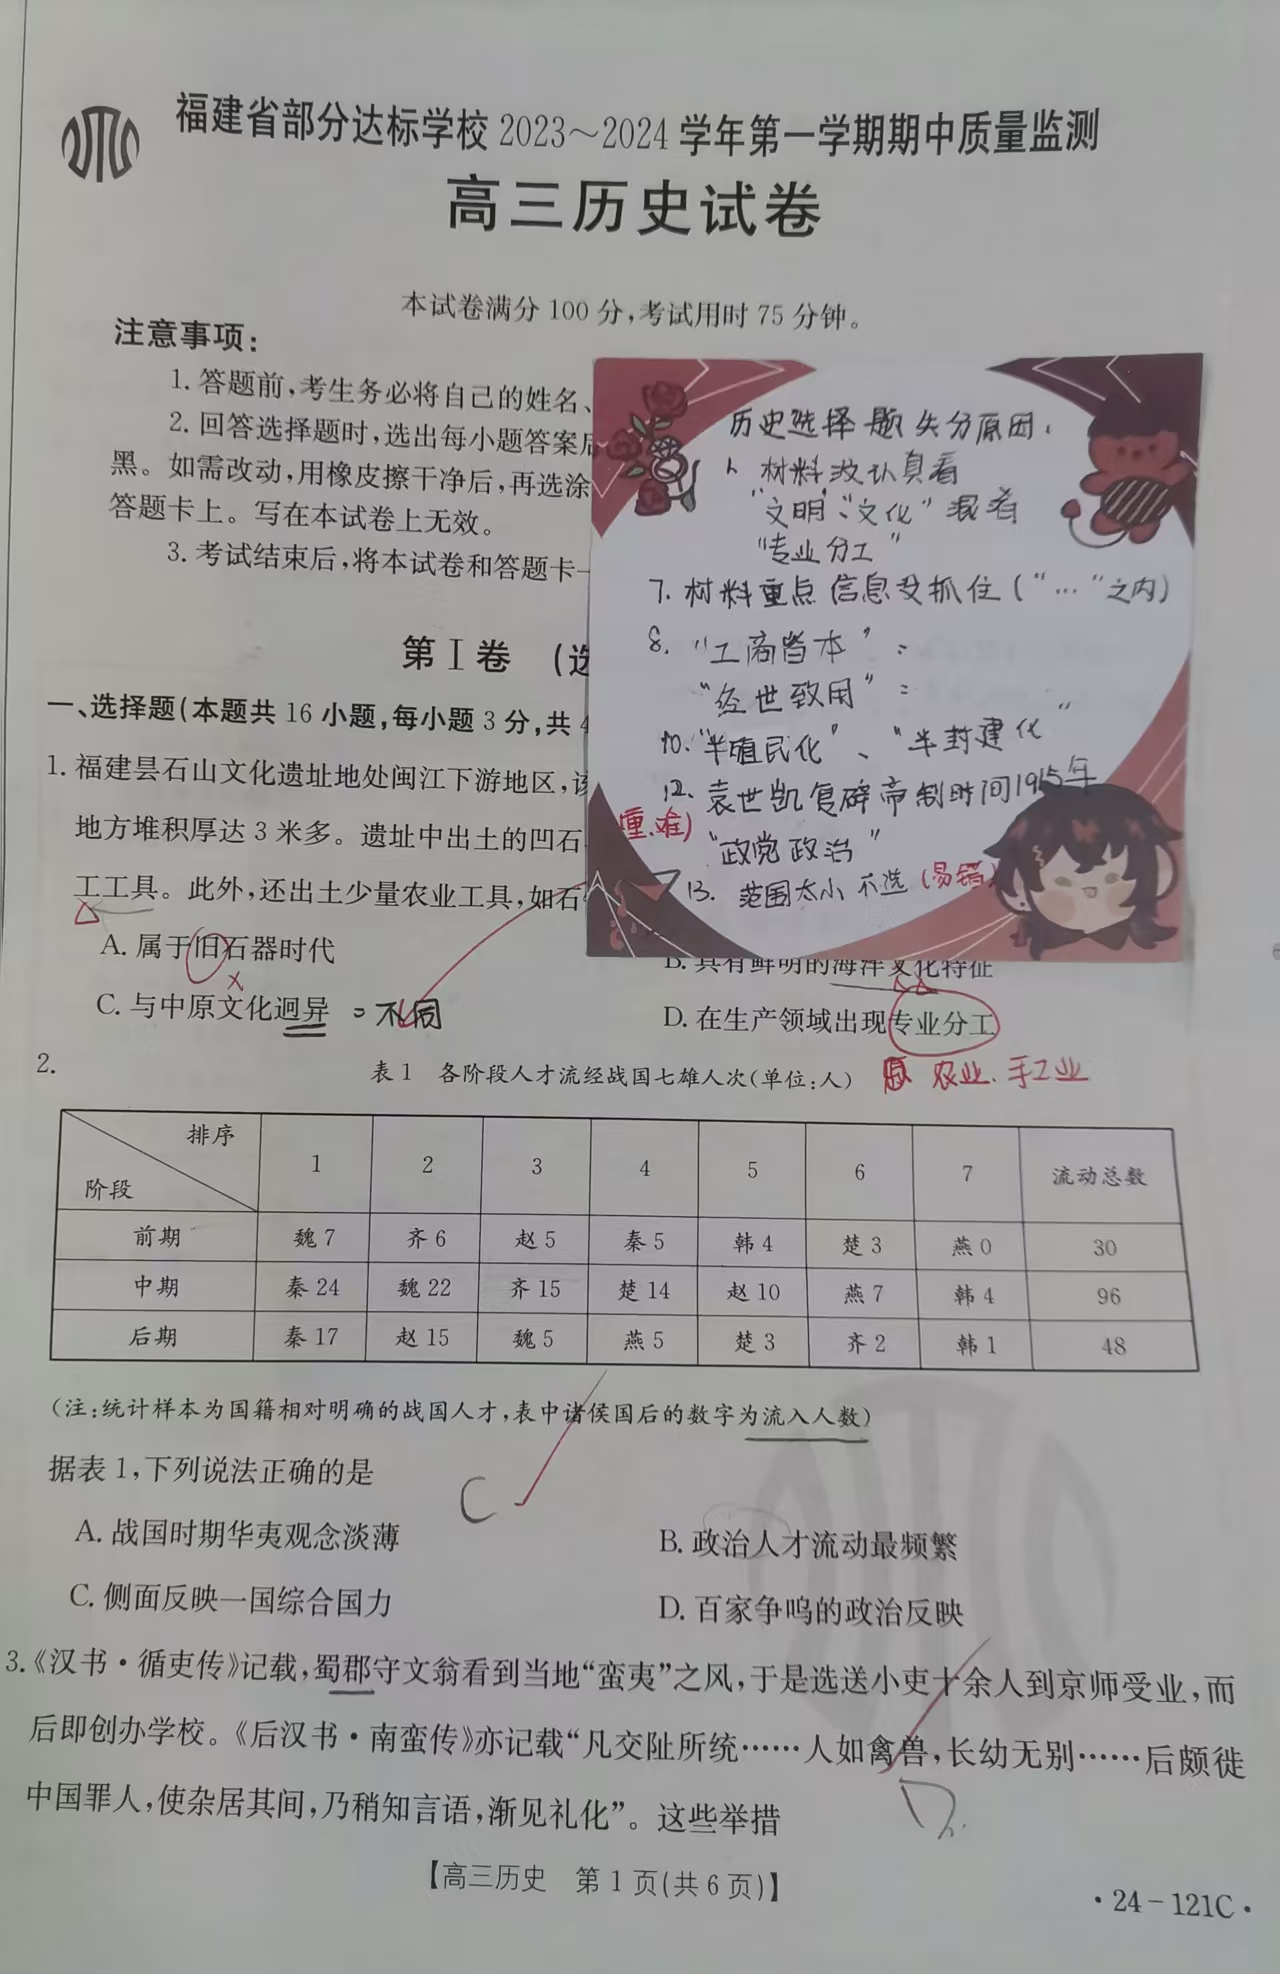 福建省部分达标学校2023~2024学年第一学期期中质量监测
高三历史试卷
本试卷满分100分,考试用时75分钟。
注意事项:
1. 答题前,考生务必将自己的姓名、
2. 回答选择题时,选出每小题答案后
黑。如需改动,用橡皮擦干净后,再选涂
答题卡上。写在本试卷上无效。
3. 考试结束后,将本试卷和答题卡一
历史选择题失分原因:
1. 材料没认真看
“文明”、“文化”混淆
“专业分工”
7. 材料重点信息没抓住(“…”之内)
8. “工商皆本”:
“经世致用”:
10. “半殖民化”、“半封建化”
12. 袁世凯复辟帝制时间1915年
重、难)
“政党政治”
13. 范围太小不选(易错)
第Ⅰ卷 (选
一、选择题(本题共16小题,每小题3分,共4
1. 福建昙石山文化遗址地处闽江下游地区,该
地方堆积厚达3米多。遗址中出土的凹石
工工具。此外,还出土少量农业工具,如石
A. 属于旧石器时代
B. 具有鲜明的海洋文化特征
C. 与中原文化迥异 = 不同
D. 在生产领域出现专业分工
农业、手工业
2.
表1 各阶段人才流经战国七雄人次(单位:人)
排序 1 2 3 4 5 6 7 流动总数
阶段
前期 魏7 齐6 赵5 秦5 韩4 楚3 燕0 30
中期 秦24 魏22 齐15 楚14 赵10 燕7 韩4 96
后期 秦17 赵15 魏5 燕5 楚3 齐2 韩1 48
(注:统计样本为国籍相对明确的战国人才,表中诸侯国后的数字为流入人数)
据表1,下列说法正确的是
C
A. 战国时期华夷观念淡薄
B. 政治人才流动最频繁
C. 侧面反映一国综合国力
D. 百家争鸣的政治反映
3.《汉书·循吏传》记载,蜀郡守文翁看到当地“蛮夷”之风,于是选送小吏十余人到京师受业,而
后即创办学校。《后汉书·南蛮传》亦记载“凡交阯所统……人如禽兽,长幼无别……后颇徙
中国罪人,使杂居其间,乃稍知言语,渐见礼化”。这些举措
D
【高三历史 第1页(共6页)】
·24-121C·